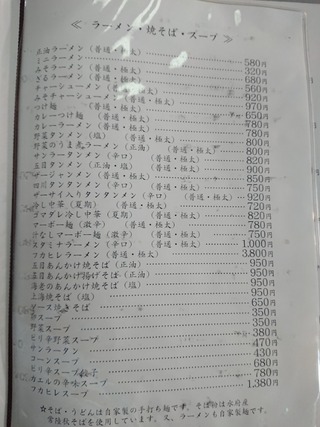 ≪ ラーメン・焼そば・スープ ≫
正油ラーメン (普通・極太) 580円
ミニラーメン 320円
みそラーメン (普通・極太) 680円
ざるラーメン (普通・極太) 560円
チャーシューメン (普通・極太) 920円
みそチャーシューメン (普通・極太) 970円
つけ麺 (普通・極太) 650円
カレーつけ麺 (普通・極太) 780円
カレーラーメン (普通・極太) 780円
野菜タンメン (塩) (普通・極太) 800円
野菜のうま煮ラーメン (正油) 800円
サンラータンメン (辛口) (普通・極太) 820円
五目タンメン (塩) (普通・極太) 900円
ザージャンメン (辛口) (普通・極太) 850円
四川タンタンメン (辛口) (普通・極太) 750円
ザーサイ入りタンタンメン (辛口) (普通・極太) 920円
冷し中華 (夏期) 720円
ゴマダレ冷し中華 (夏期) (普通・極太) 820円
マーボー麺 (激辛) (普通・極太) 780円
汁なしマーボー麺 (激辛) (普通・極太) 750円
スタミナラーメン (普通・極太) 1,000円
フカヒレラーメン (普通・極太) 3,800円
五目あんかけ焼そば (正油) 950円
五目あんかけ揚げそば (正油) 950円
海老のあんかけ焼そば (塩) 950円
上海焼そば (塩) 650円
ソース焼きそば 350円
卵スープ 350円
野菜スープ 380円
ピリ辛野菜スープ 470円
サンラータン 430円
コーンスープ 680円
ピリ辛スープ餃子 780円
カエルの辛味スープ 1,380円
フカヒレスープ
☆そば・うどんは自家製の手打ち麺です。そば粉は水府産
常陸秋そばを使用しています。又、ラーメンも自家製麺です。